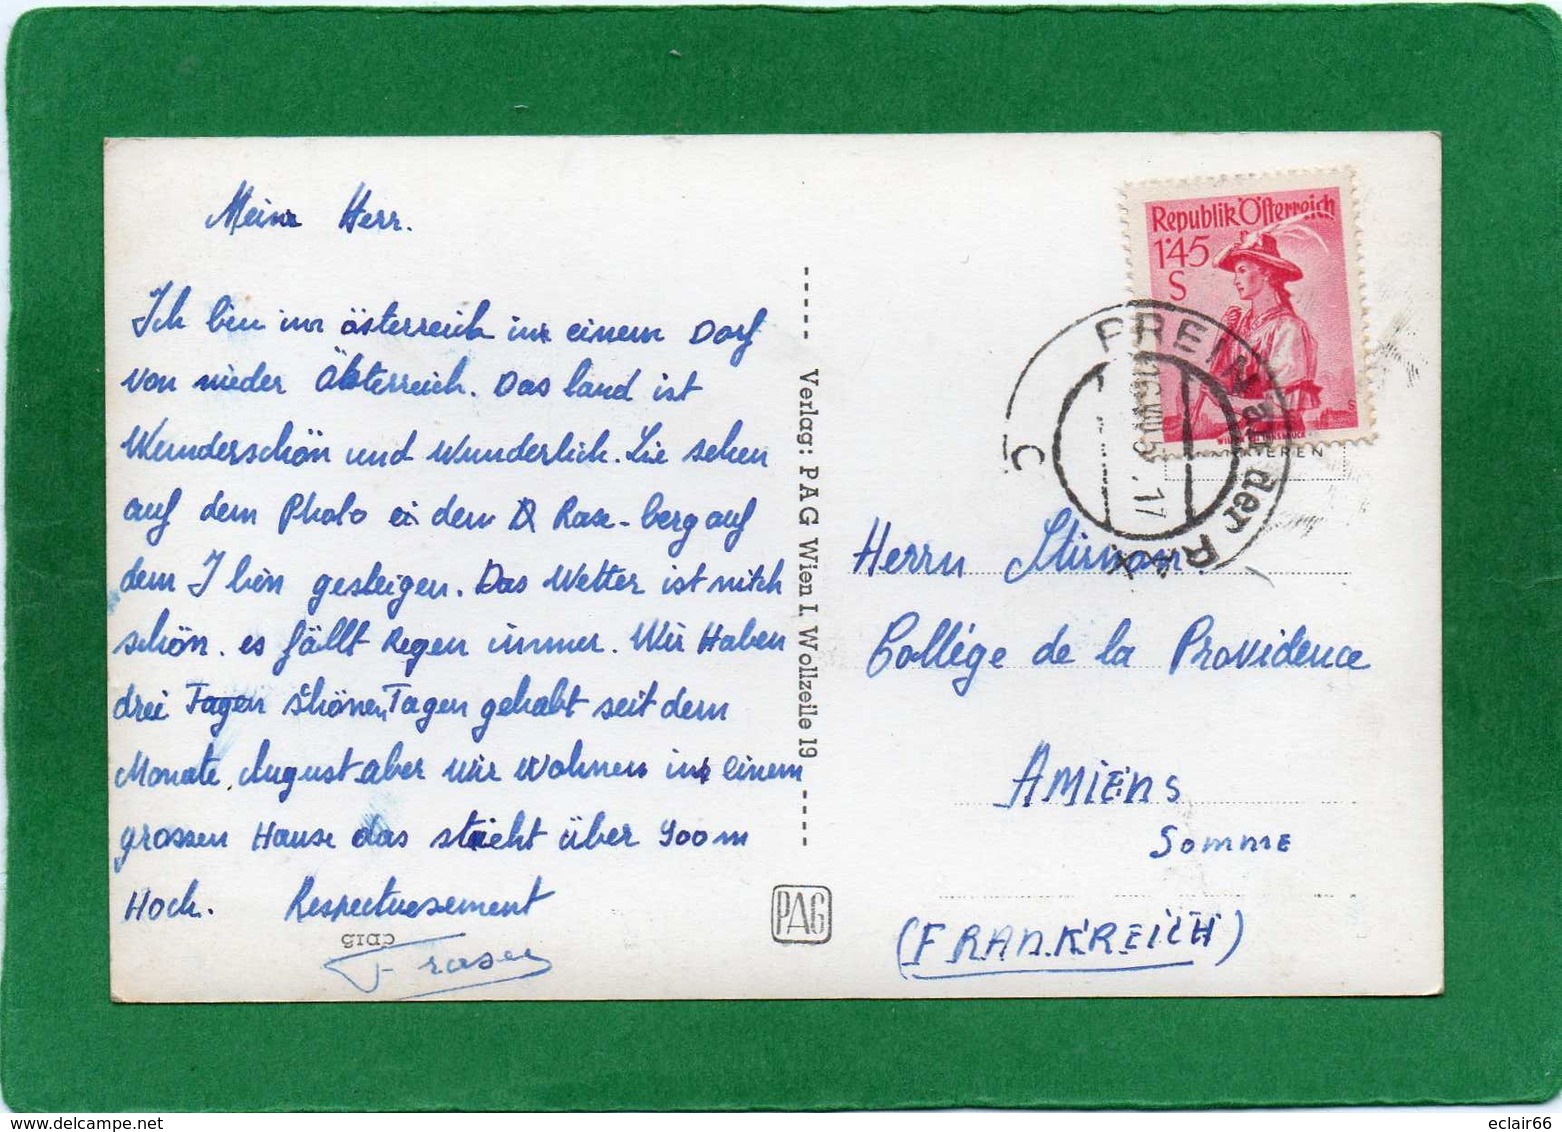 Mein Herr.
Ich bin in österreich in einem Dorf
von nieder Österreich. Das land ist
Wunderschön und wunderlich. Sie sehen
auf dem Photo den Rax-berg auf
dem I bin gesteigen. Das Wetter ist nitch
schön. es fällt Regen immer. Wir Haben
drei Tagen schönen Tagen gehabt seit dem
Monate August aber wir wohnen in einem
grossen Hause das steht über 900 m
Hoch. Respectuesement
Fraser
Verlag: PAG Wien I. Wollzeile 19
PAG
Republik Österreich
1'45
S
PREIN an der RAX
17
Herrn
Collége de la Providence
AMIENS
SOMME
(FRANKREICH)
eclair66